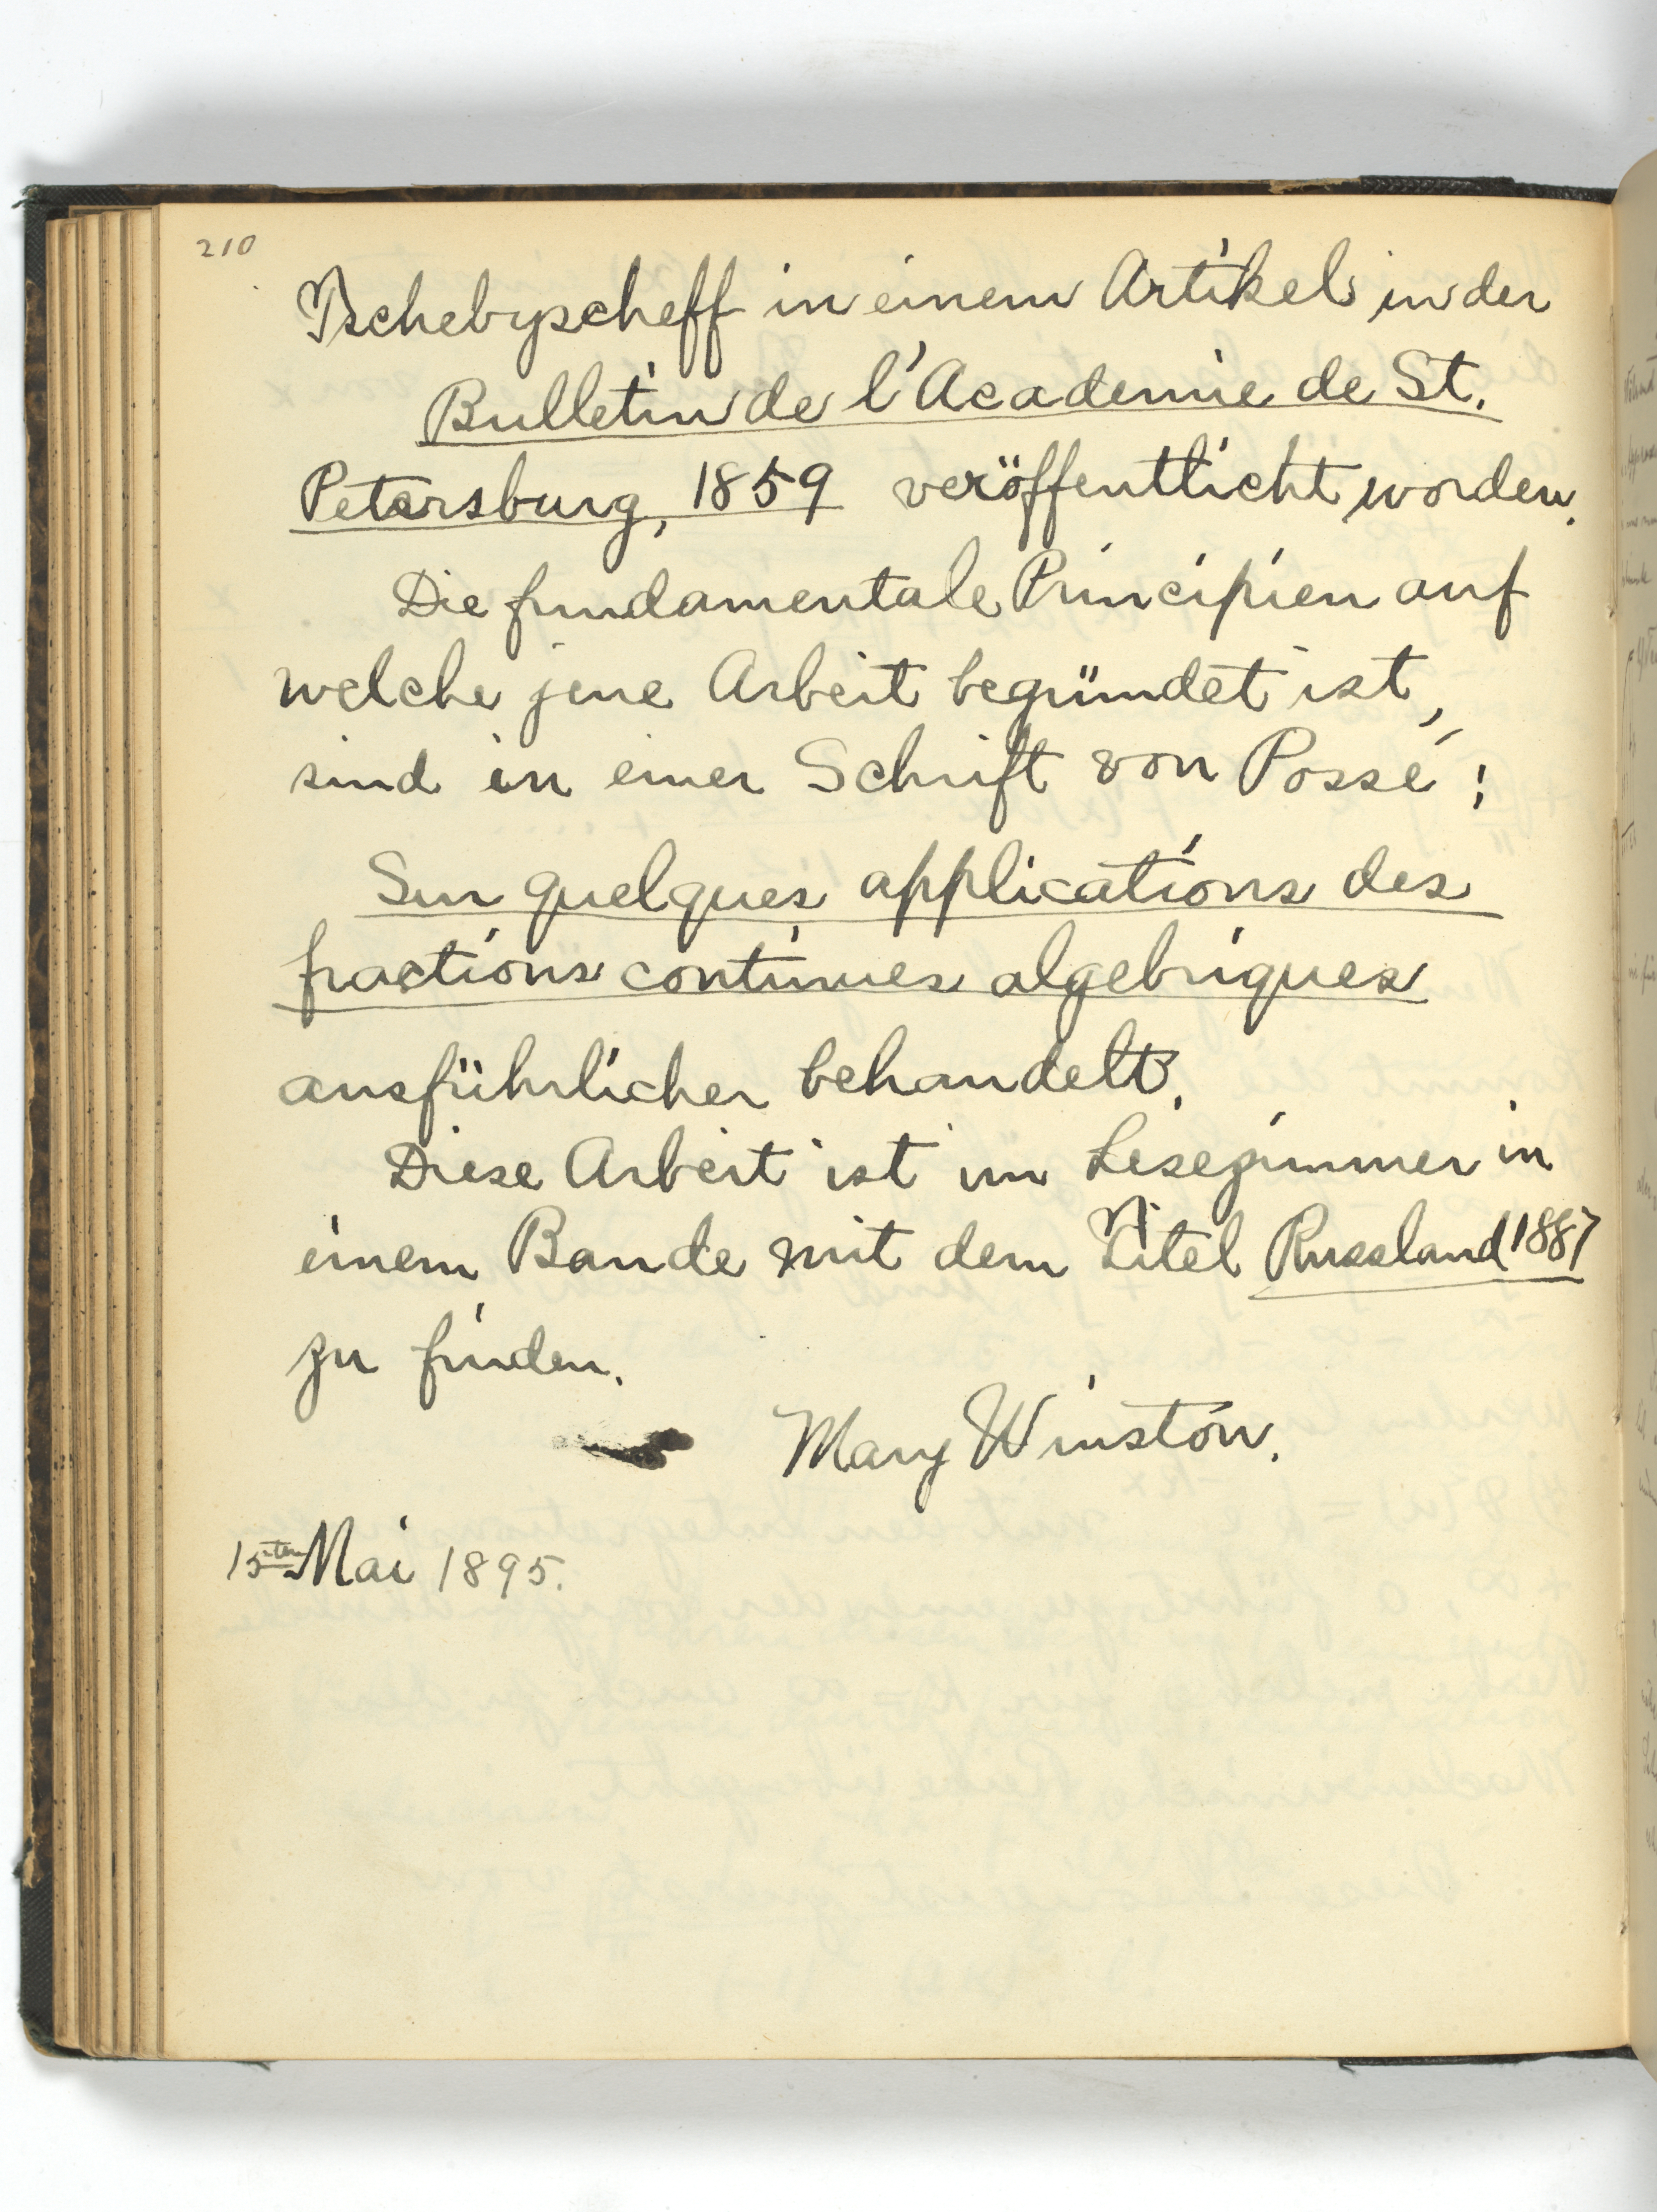 210
Tschebyscheff in einem Artikel in der
Bulletin de l'Academie de St.
Petersburg, 1859 veröffentlicht worden.
Die fundamentale Principien auf
welche jene Arbeit begründet ist,
sind in einer Schrift von Possé:
Sur quelques applications des
fractions continues algebriques
ausführlicher behandelt.
Diese Arbeit ist im Lesezimmer in
einem Bande mit dem Titel Russland 1887
zu finden.
Mary Winston.
15ten Mai 1895.